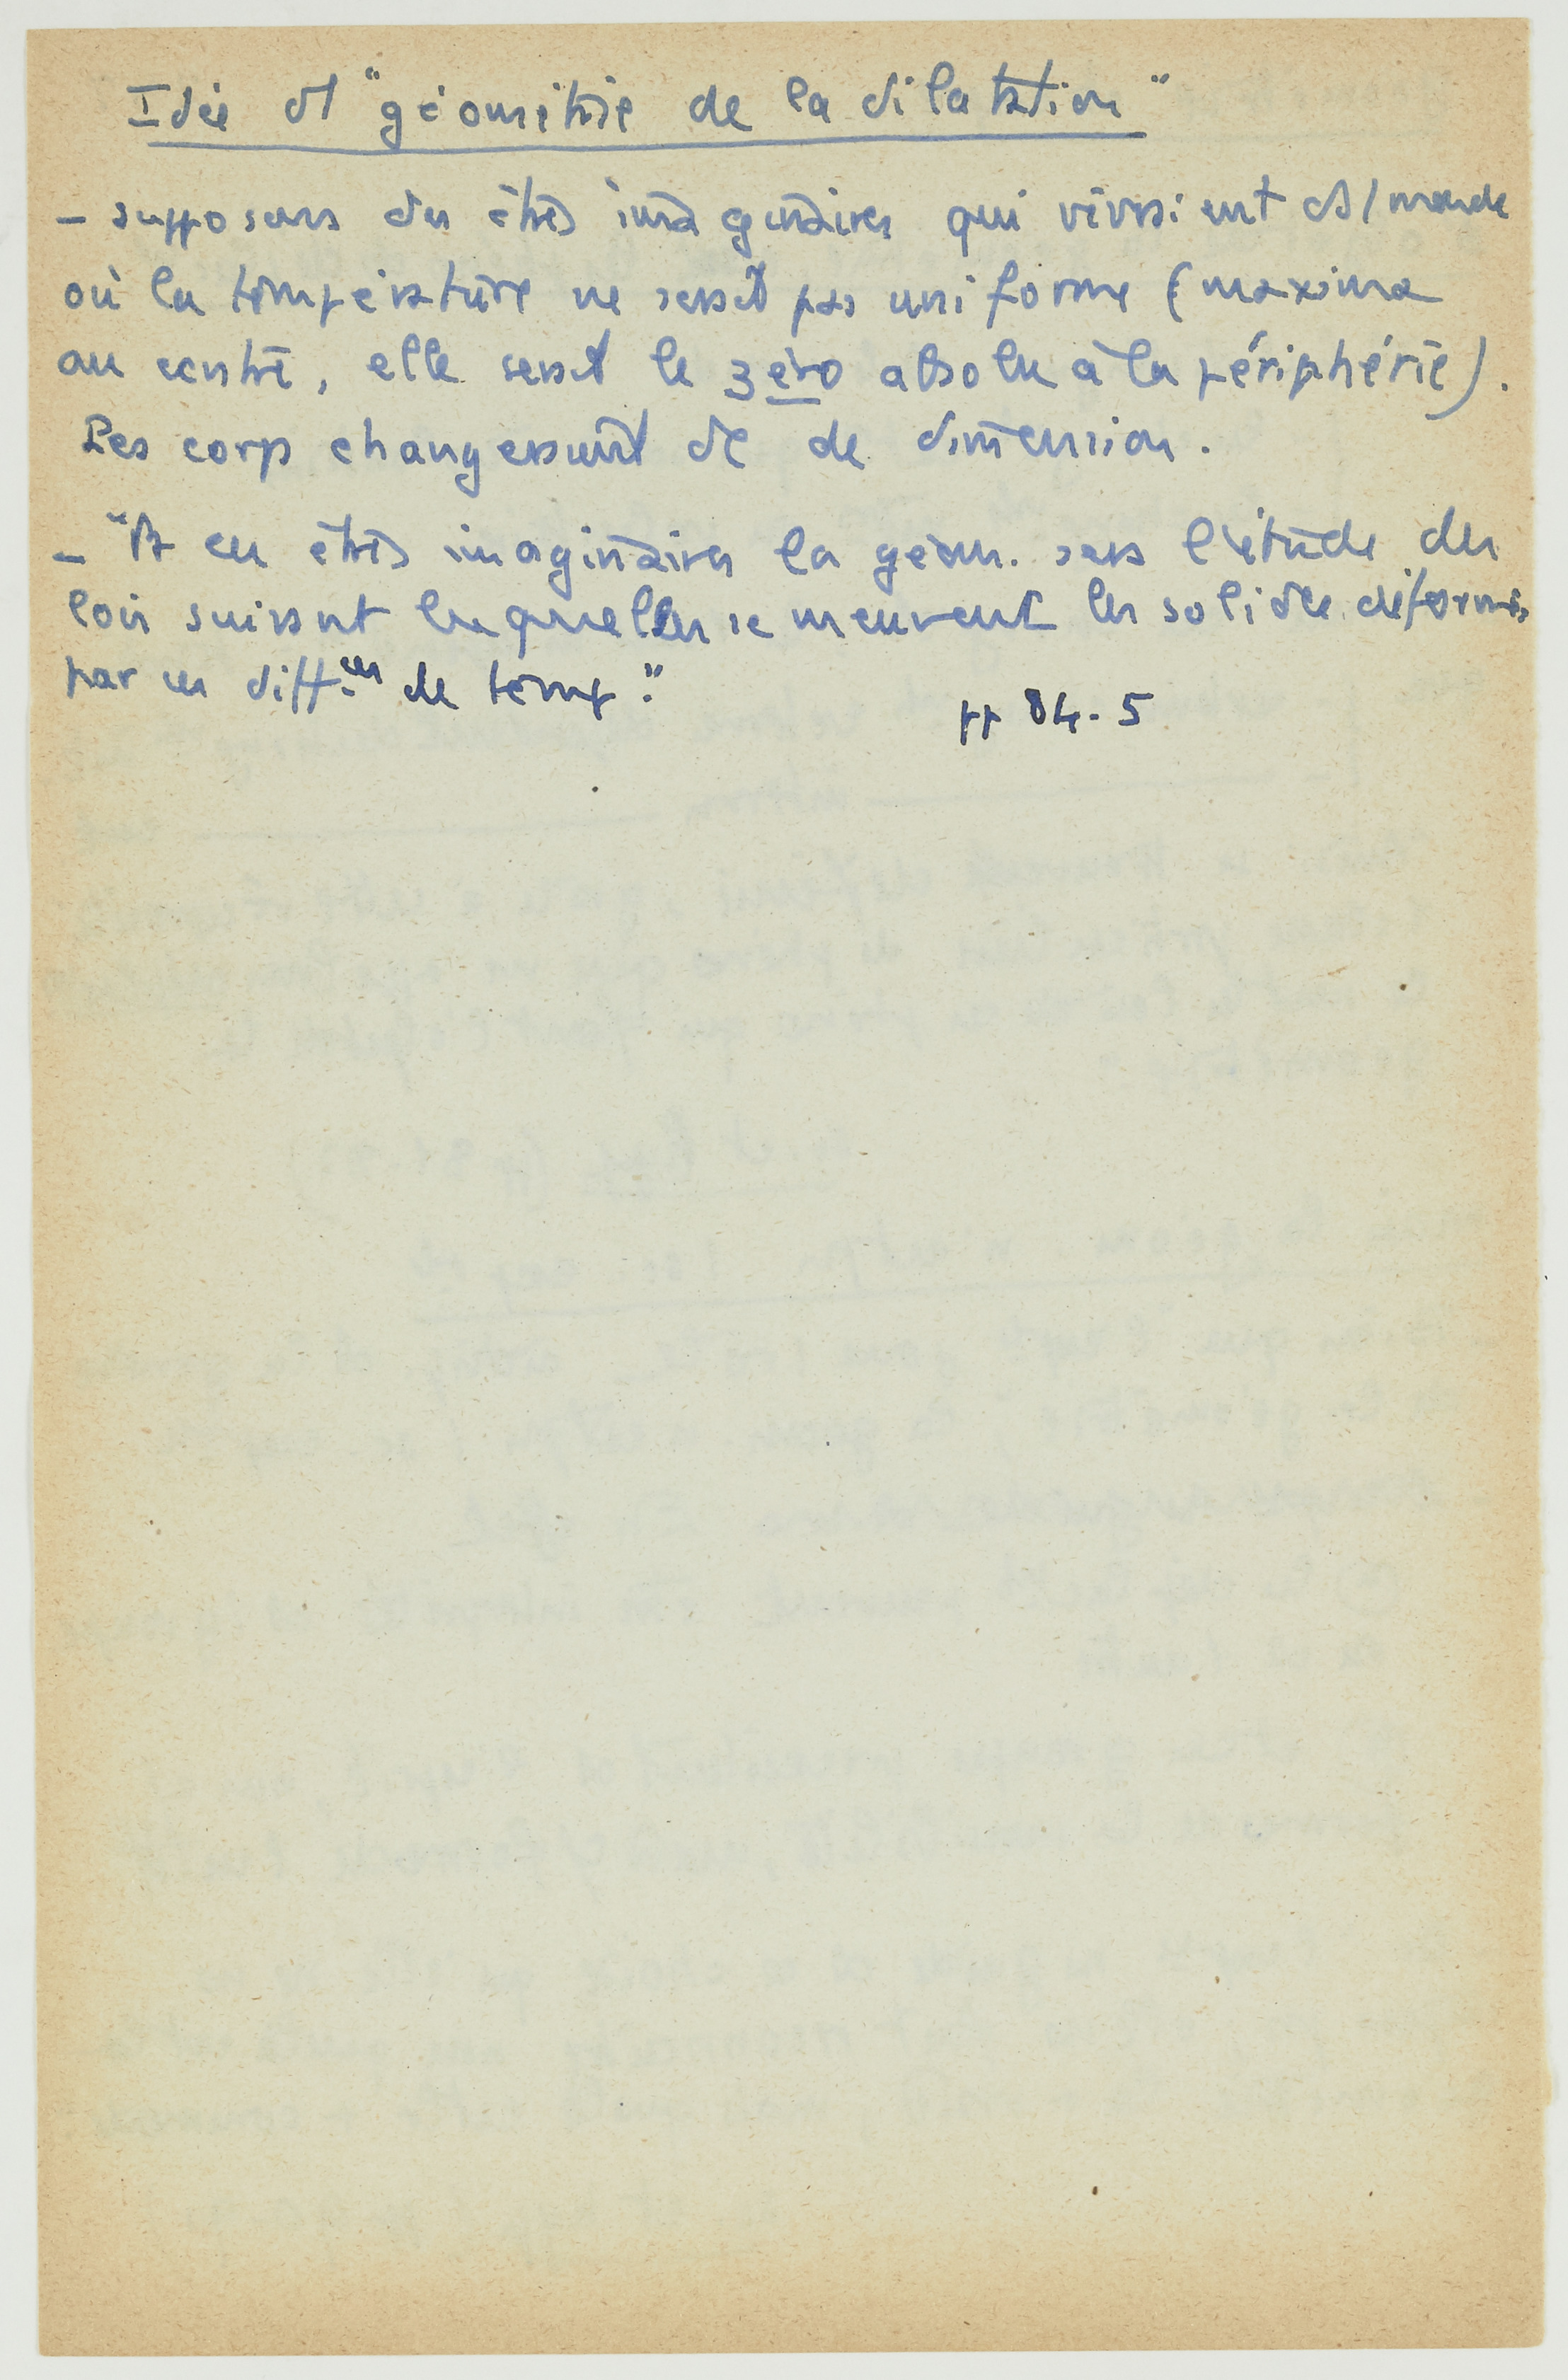 Idée d' "géométrie de la dilatation"
– supposons des êtres imaginaires qui vivraient ds / monde
où la température ne serait pas uniforme (maxima
au centre, elle serait le zéro absolu à la périphérie).
Les corps changeraient de dimension.
– "Pr ces êtres imaginaires la géom. sera l'étude des
lois suivant lesquelles se meuvent les solides déformés
par ces diff.ces de temp."
pp 84-5